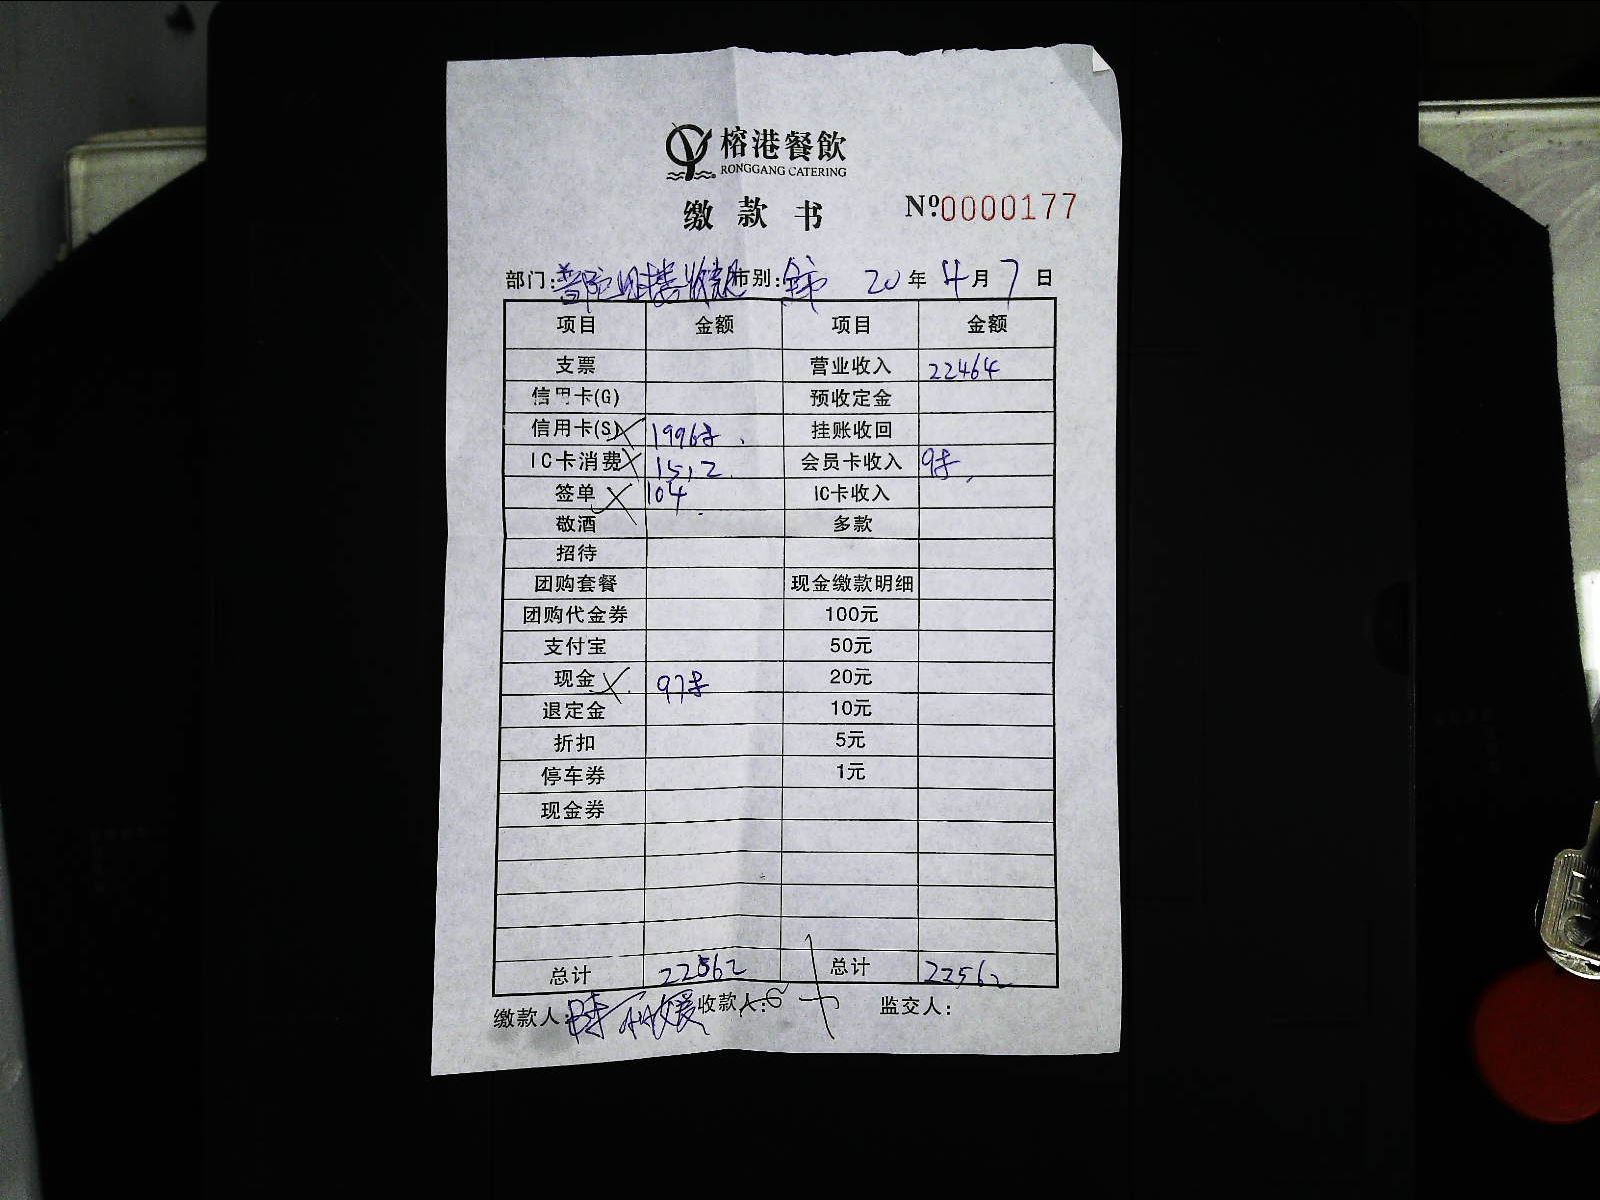 榕港餐飲
RONGGANG CATERING
缴款书 №0000177
部门: 市别: 20年4月7日
项目 金额 项目 金额
支票 营业收入 22464
信用卡(G) 预收定金
信用卡(S) 挂账收回
IC卡消费 1512 会员卡收入
签单 104 IC卡收入
敬酒 多款
招待
团购套餐 现金缴款明细
团购代金券 100元
支付宝 50元
现金 20元
退定金 10元
折扣 5元
停车券 1元
现金券
总计 22562 总计 22562
缴款人: 收款人: 监交人: